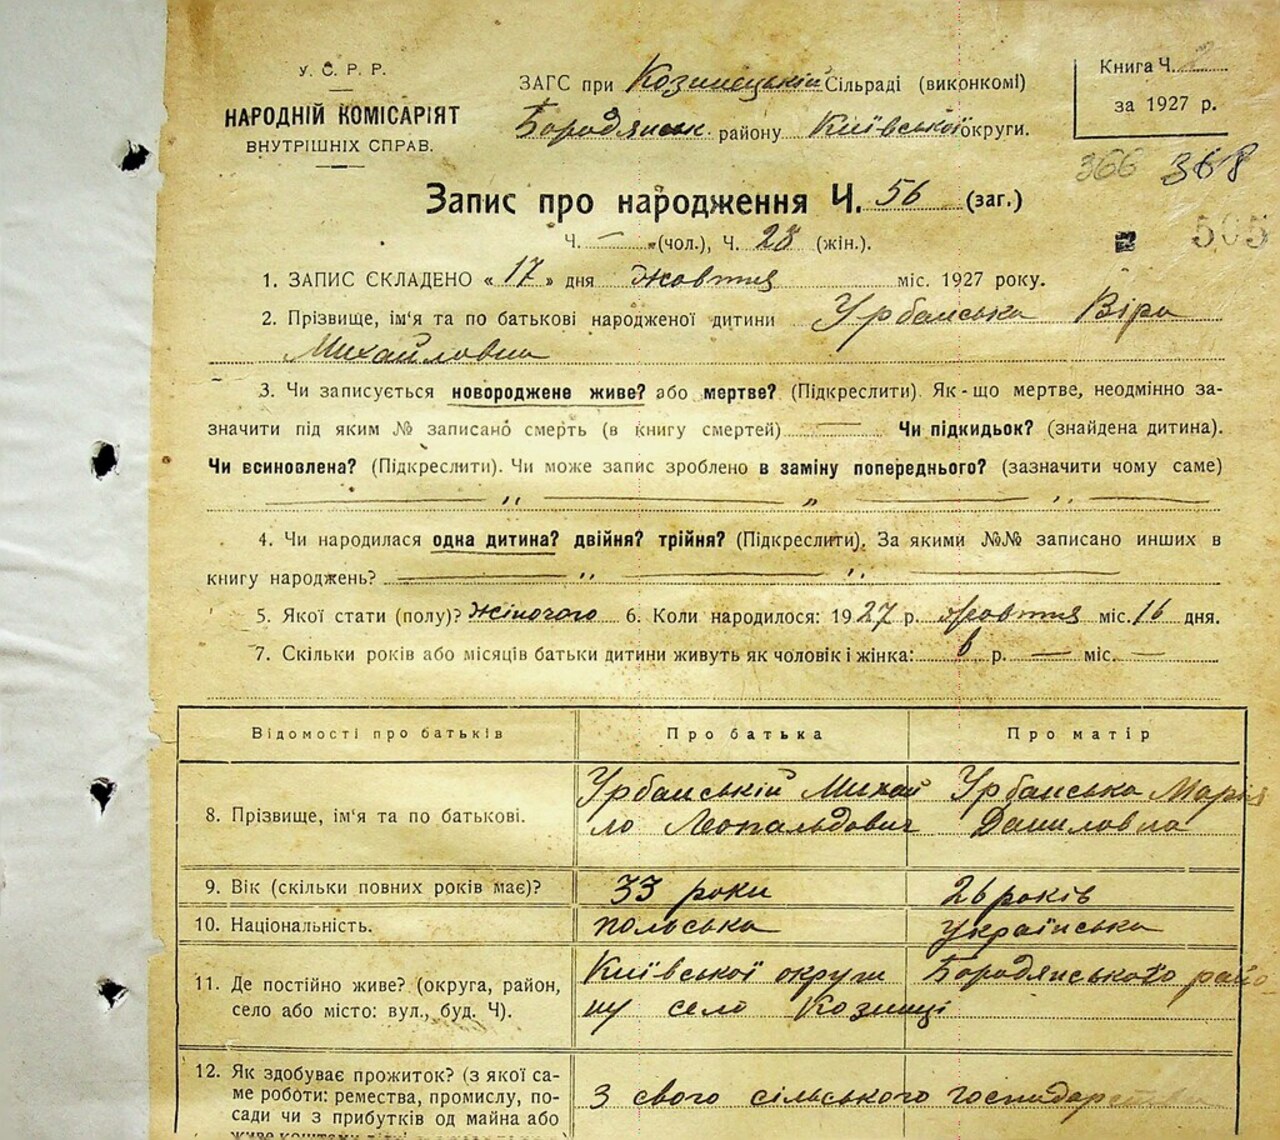 У. С. Р. Р.
НАРОДНІЙ КОМІСАРІЯТ
ВНУТРІШНІХ СПРАВ.
ЗАГС при Козинецькій Сільраді (виконкомі)
Бородянськ. району Київської округи.
Книга Ч. 2
за 1927 р.
366 368
505
Запис про народження Ч. 56 (заг.)
Ч. — (чол.), Ч. 28 (жін.).
1. ЗАПИС СКЛАДЕНО « 17 » дня жовтня міс. 1927 року.
2. Прізвище, ім‘я та по батькові народженої дитини Урбанська Віра
Михайловна
3. Чи записується новороджене живе? або мертве? (Підкреслити). Як-що мертве, неодмінно за-
значити під яким № записано смерть (в книгу смертей) — Чи підкидьок? (знайдена дитина).
Чи всиновлена? (Підкреслити). Чи може запис зроблено в заміну попереднього? (зазначити чому саме)
— „ — „ — „ —
4. Чи народилася одна дитина? двійня? трійня? (Підкреслити). За якими №№ записано инших в
книгу народжень? — „ — „ —
5. Якої стати (полу)? Жіночого 6. Коли народилося: 1927 р. жовтня міс. 16 дня.
7. Скільки років або місяців батьки дитини живуть як чоловік і жінка: 6 р. — міс. —
Відомості про батьків Про батька Про матір
8. Прізвище, ім‘я та по батькові.
Урбанській Михай
ло Леопальдович
Урбанська Марія
Даниловна
9. Вік (скільки повних років має)? 33 роки 26 років
10. Національність. польська українська
11. Де постійно живе? (округа, район,
село або місто: вул., буд. Ч).
Київської округи Бородянського райо
ну село Козинці
12. Як здобуває прожиток? (з якої са-
ме роботи: ремества, промислу, по-
сади чи з прибутків од майна або
З свого сільського господарства